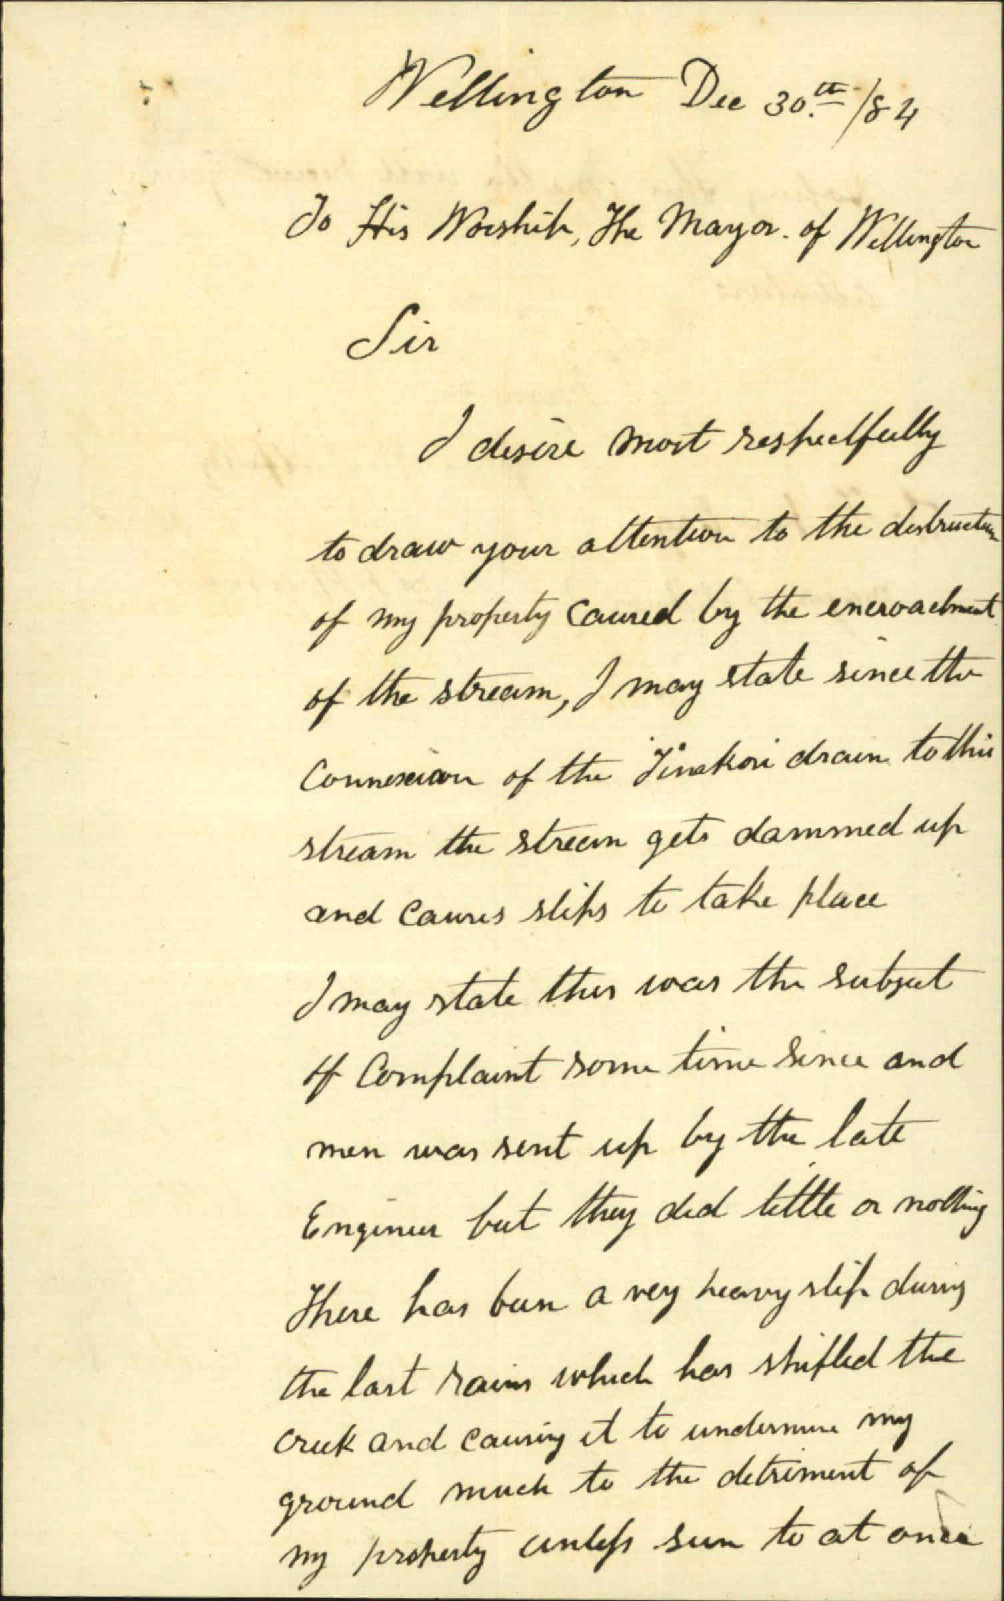 Wellington Dec 30.th /84
To His Worship, The Mayor. of Wellington
Sir
I desire most respectfully
to draw your attention to the destruction
of my property caused by the encroachment
of the stream, I may state since the
Connexion of the Tinakori drain to this
stream the stream gets dammed up
and causes slips to take place
I may state this was the subject
of Complaint some time since and
men was sent up by the late
Engineer but they did little or nothing
There has been a very heavy slip during
the last rains which has shifted the
creek and causing it to undermine my
ground much to the detriment of
my property unless seen to at once